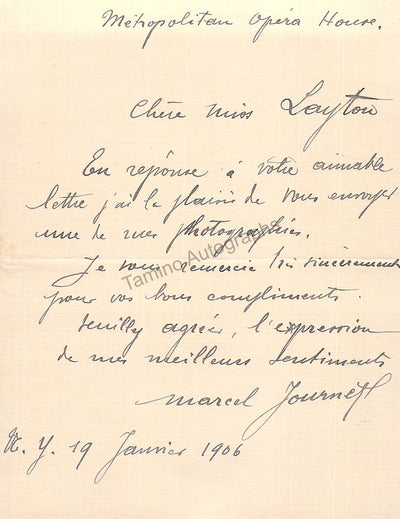 Métropolitan Opéra House.
Chère Miss Layton
En réponse à votre aimable
lettre j'ai le plaisir de vous envoyer
une de mes photographies.
Je vous remercie très sincèrement
pour vos bons compliments.
Veuilly agréer, l'expression
de mes meilleurs sentiments
Marcel Journet
N. Y. 19 Janvier 1906
Tamino Autographs